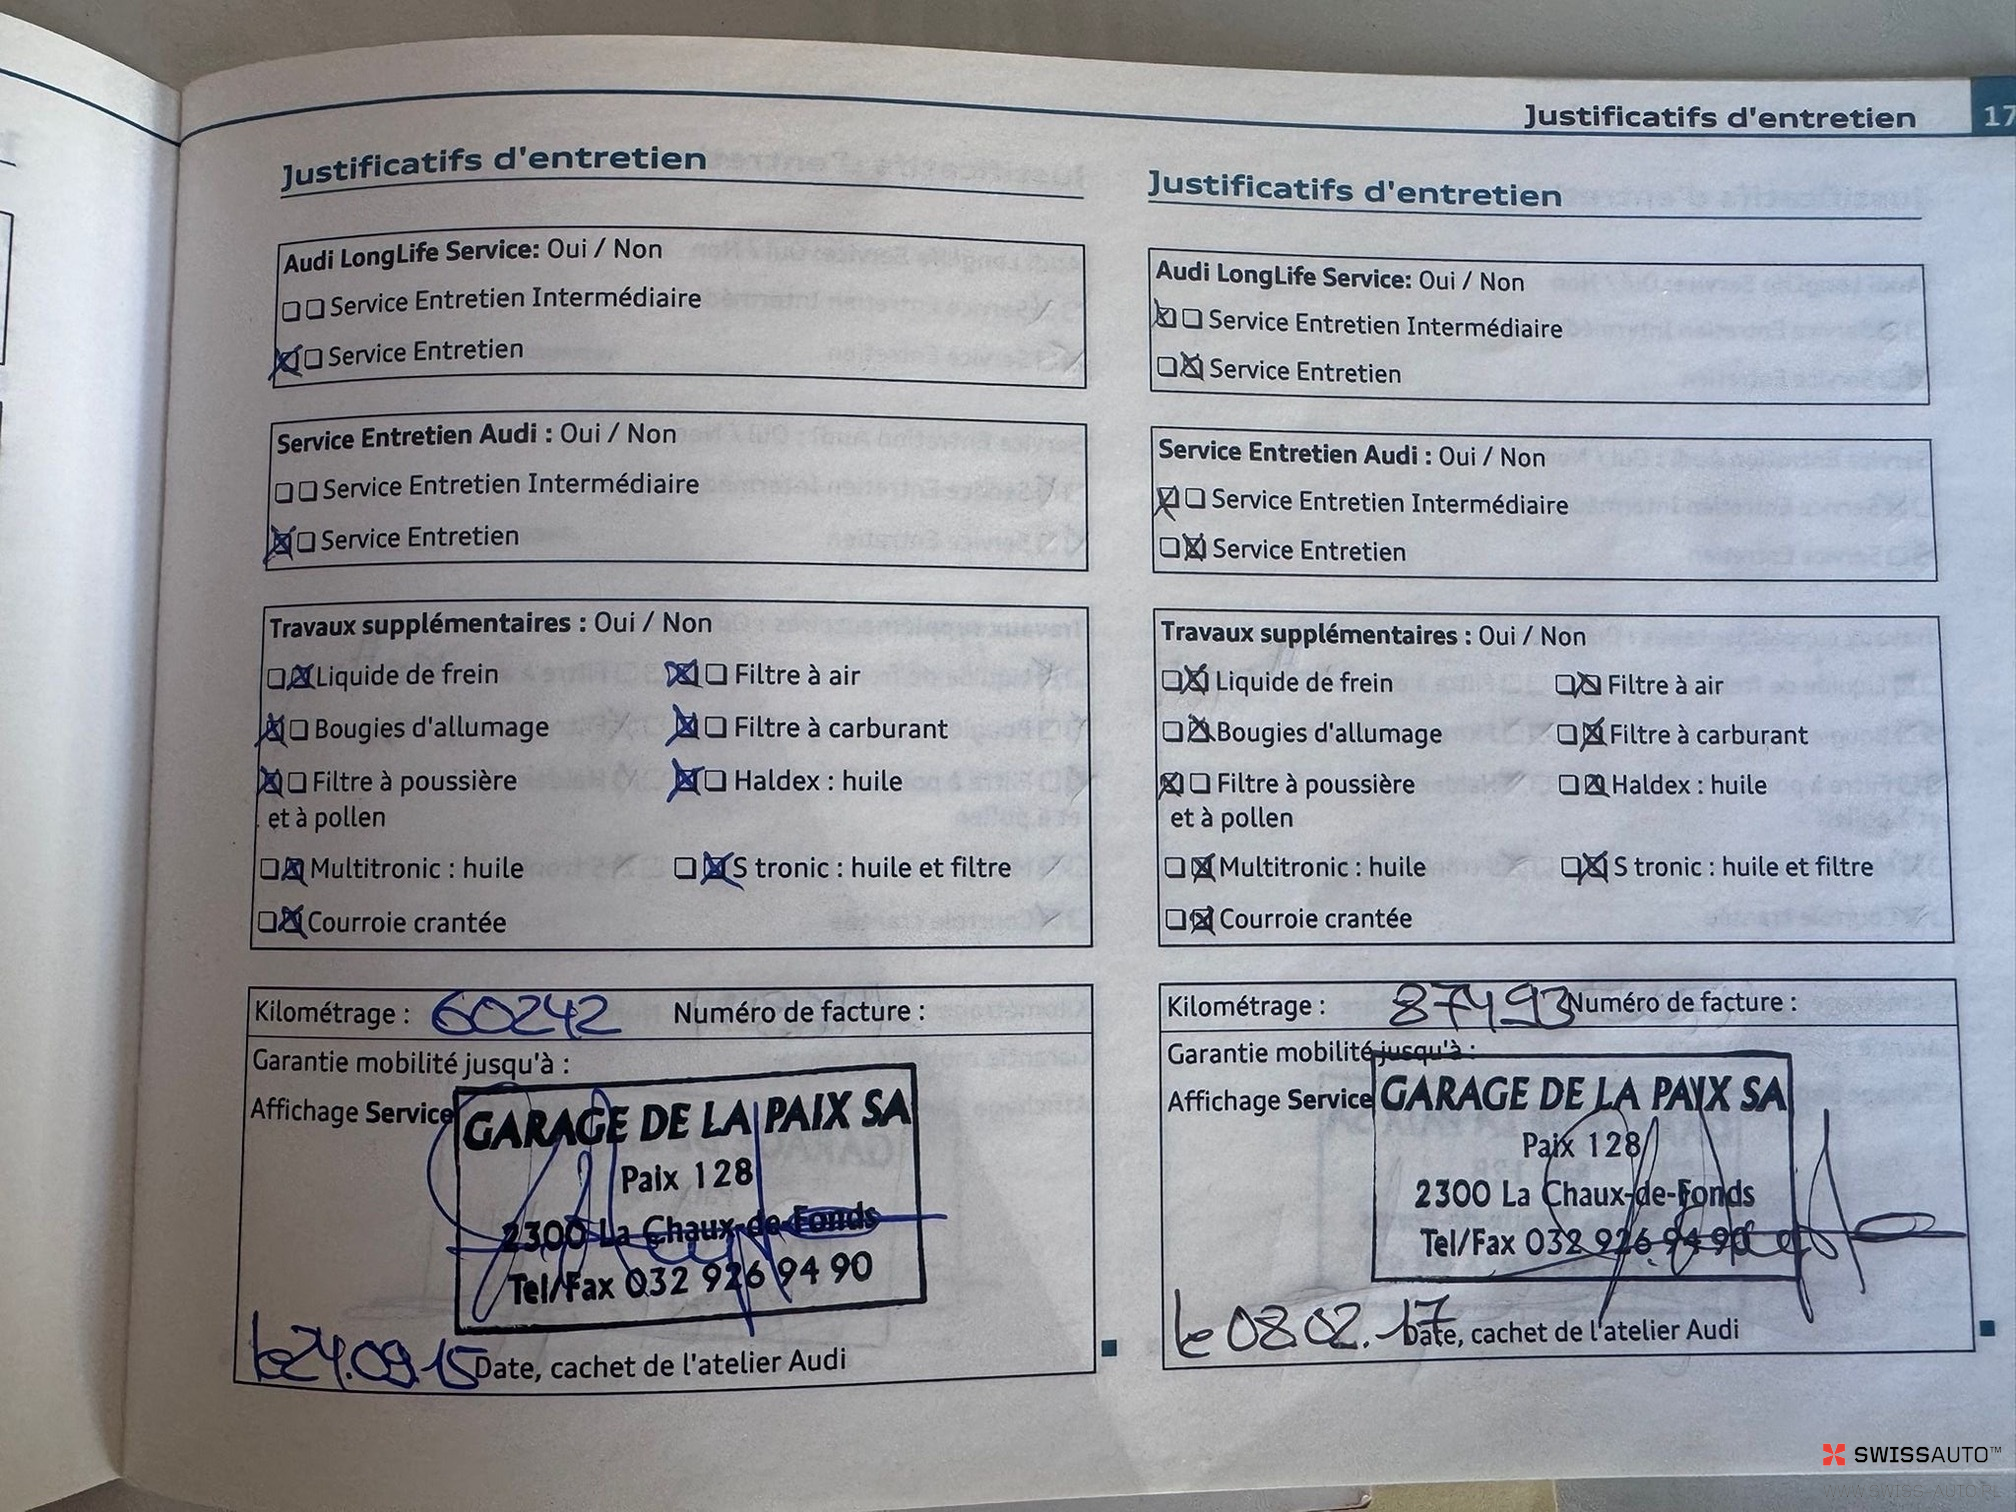 Justificatifs d'entretien 17
Justificatifs d'entretien
Audi LongLife Service: Oui / Non
☒ ☐ Service Entretien Intermédiaire
☐ ☒ Service Entretien
Service Entretien Audi : Oui / Non
☒ ☐ Service Entretien Intermédiaire
☐ ☒ Service Entretien
Travaux supplémentaires : Oui / Non
☐ ☒ Liquide de frein ☐ ☒ Filtre à air
☐ ☒ Bougies d'allumage ☐ ☒ Filtre à carburant
☒ ☐ Filtre à poussière ☐ ☒ Haldex : huile
et à pollen
☐ ☒ Multitronic : huile ☐ ☒ S tronic : huile et filtre
☐ ☒ Courroie crantée
Kilométrage : 87493 Numéro de facture :
Garantie mobilité jusqu'à :
Affichage Service
GARAGE DE LA PAIX SA
Paix 128
2300 La Chaux-de-Fonds
Tel/Fax 032 926 94 90
le 08.02.17 Date, cachet de l'atelier Audi
Justificatifs d'entretien
Audi LongLife Service: Oui / Non
☐ ☐ Service Entretien Intermédiaire
☒ ☐ Service Entretien
Service Entretien Audi : Oui / Non
☐ ☐ Service Entretien Intermédiaire
☒ ☐ Service Entretien
Travaux supplémentaires : Oui / Non
☐ ☒ Liquide de frein ☒ ☐ Filtre à air
☒ ☐ Bougies d'allumage ☒ ☐ Filtre à carburant
☒ ☐ Filtre à poussière ☒ ☐ Haldex : huile
et à pollen
☐ ☒ Multitronic : huile ☐ ☒ S tronic : huile et filtre
☐ ☒ Courroie crantée
Kilométrage : 60242 Numéro de facture :
Garantie mobilité jusqu'à :
Affichage Service
GARAGE DE LA PAIX SA
Paix 128
2300 La Chaux-de-Fonds
Tel/Fax 032 926 94 90
le 24.09.15 Date, cachet de l'atelier Audi
SWISSAUTO™